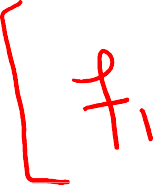 [ f₁